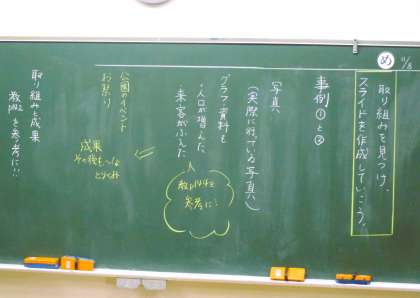 11/8
め
取り組みを見つけ、
スライドを作成していこう。
事例①と②
写真
(実際に行っている写真)
グラフ・資料も
・人口が増えた
・来客がふえた
教p144を
参考に!
公園のイベント
お祭り
成果
その後も〜な
とりくみ
取り組みと成果
を参考に!!